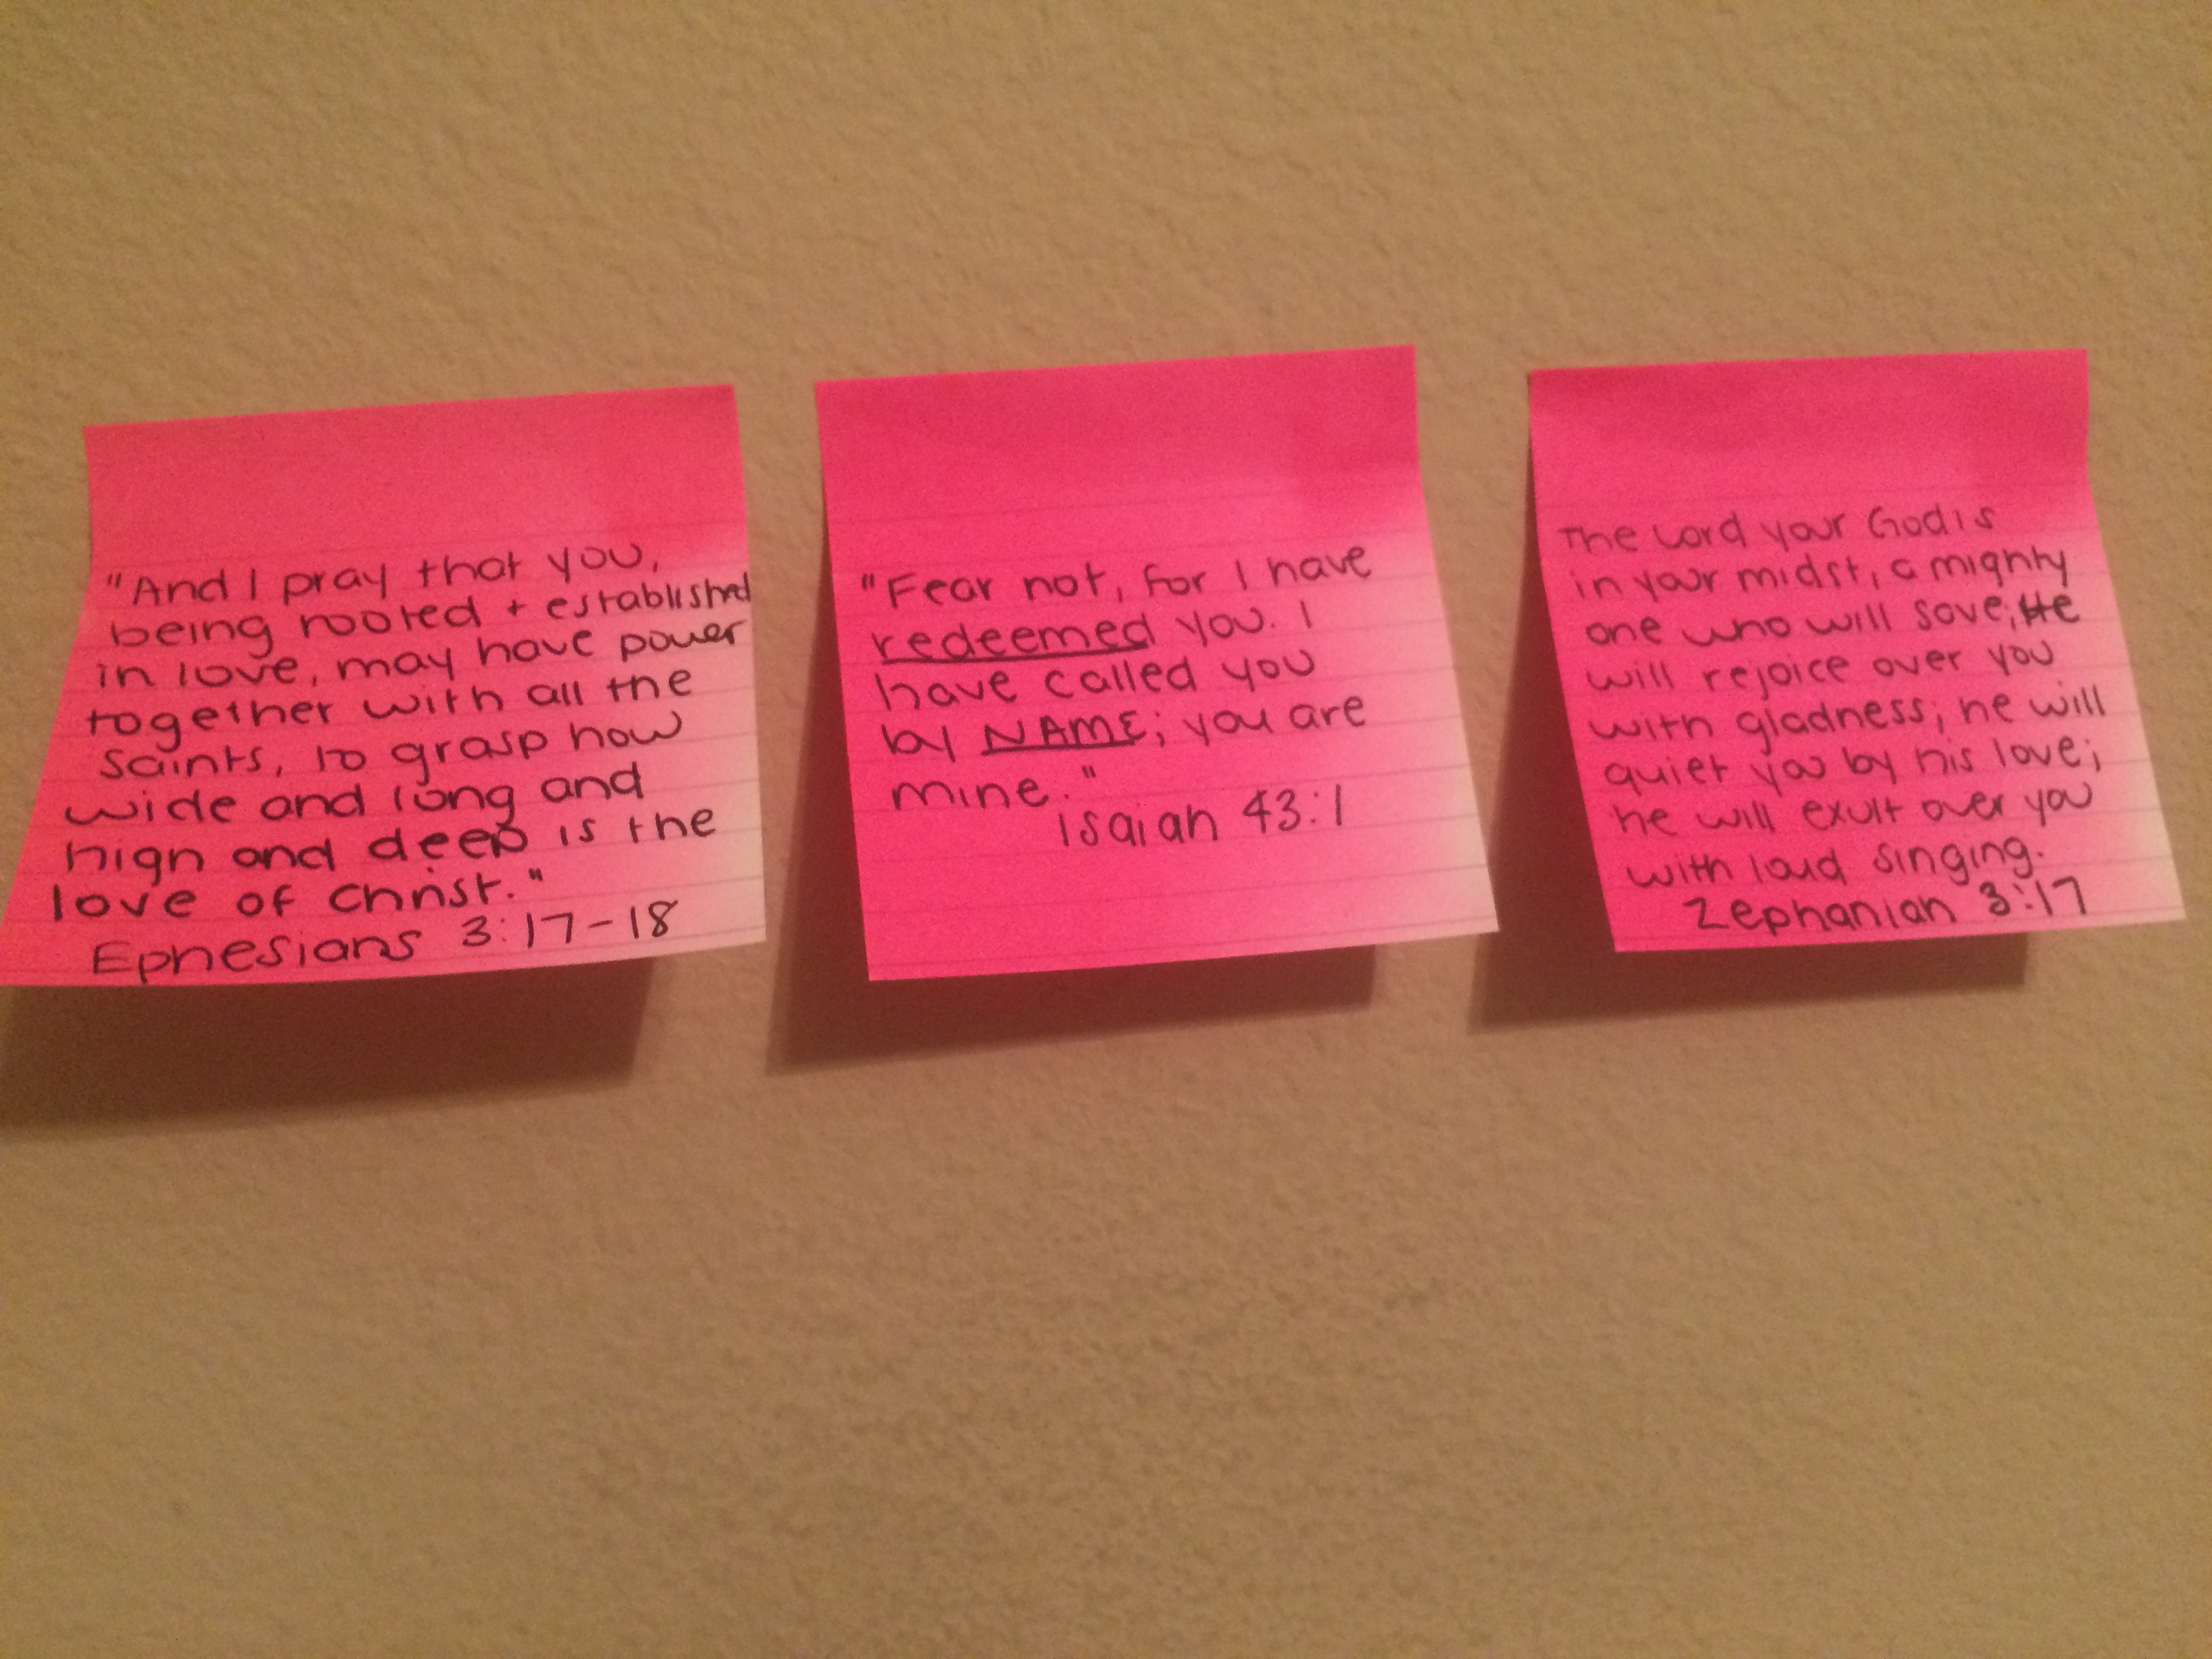 "And I pray that you,
being rooted + established
in love, may have power
together with all the
saints, to grasp how
wide and long and
high and deep is the
love of Christ."
Ephesians 3:17-18
"Fear not, for I have
redeemed you. I
have called you
by NAME; you are
mine."
Isaiah 43:1
The Lord your God is
in your midst, a mighty
one who will save; He
will rejoice over you
with gladness; he will
quiet you by his love;
he will exult over you
with loud singing.
Zephaniah 3:17